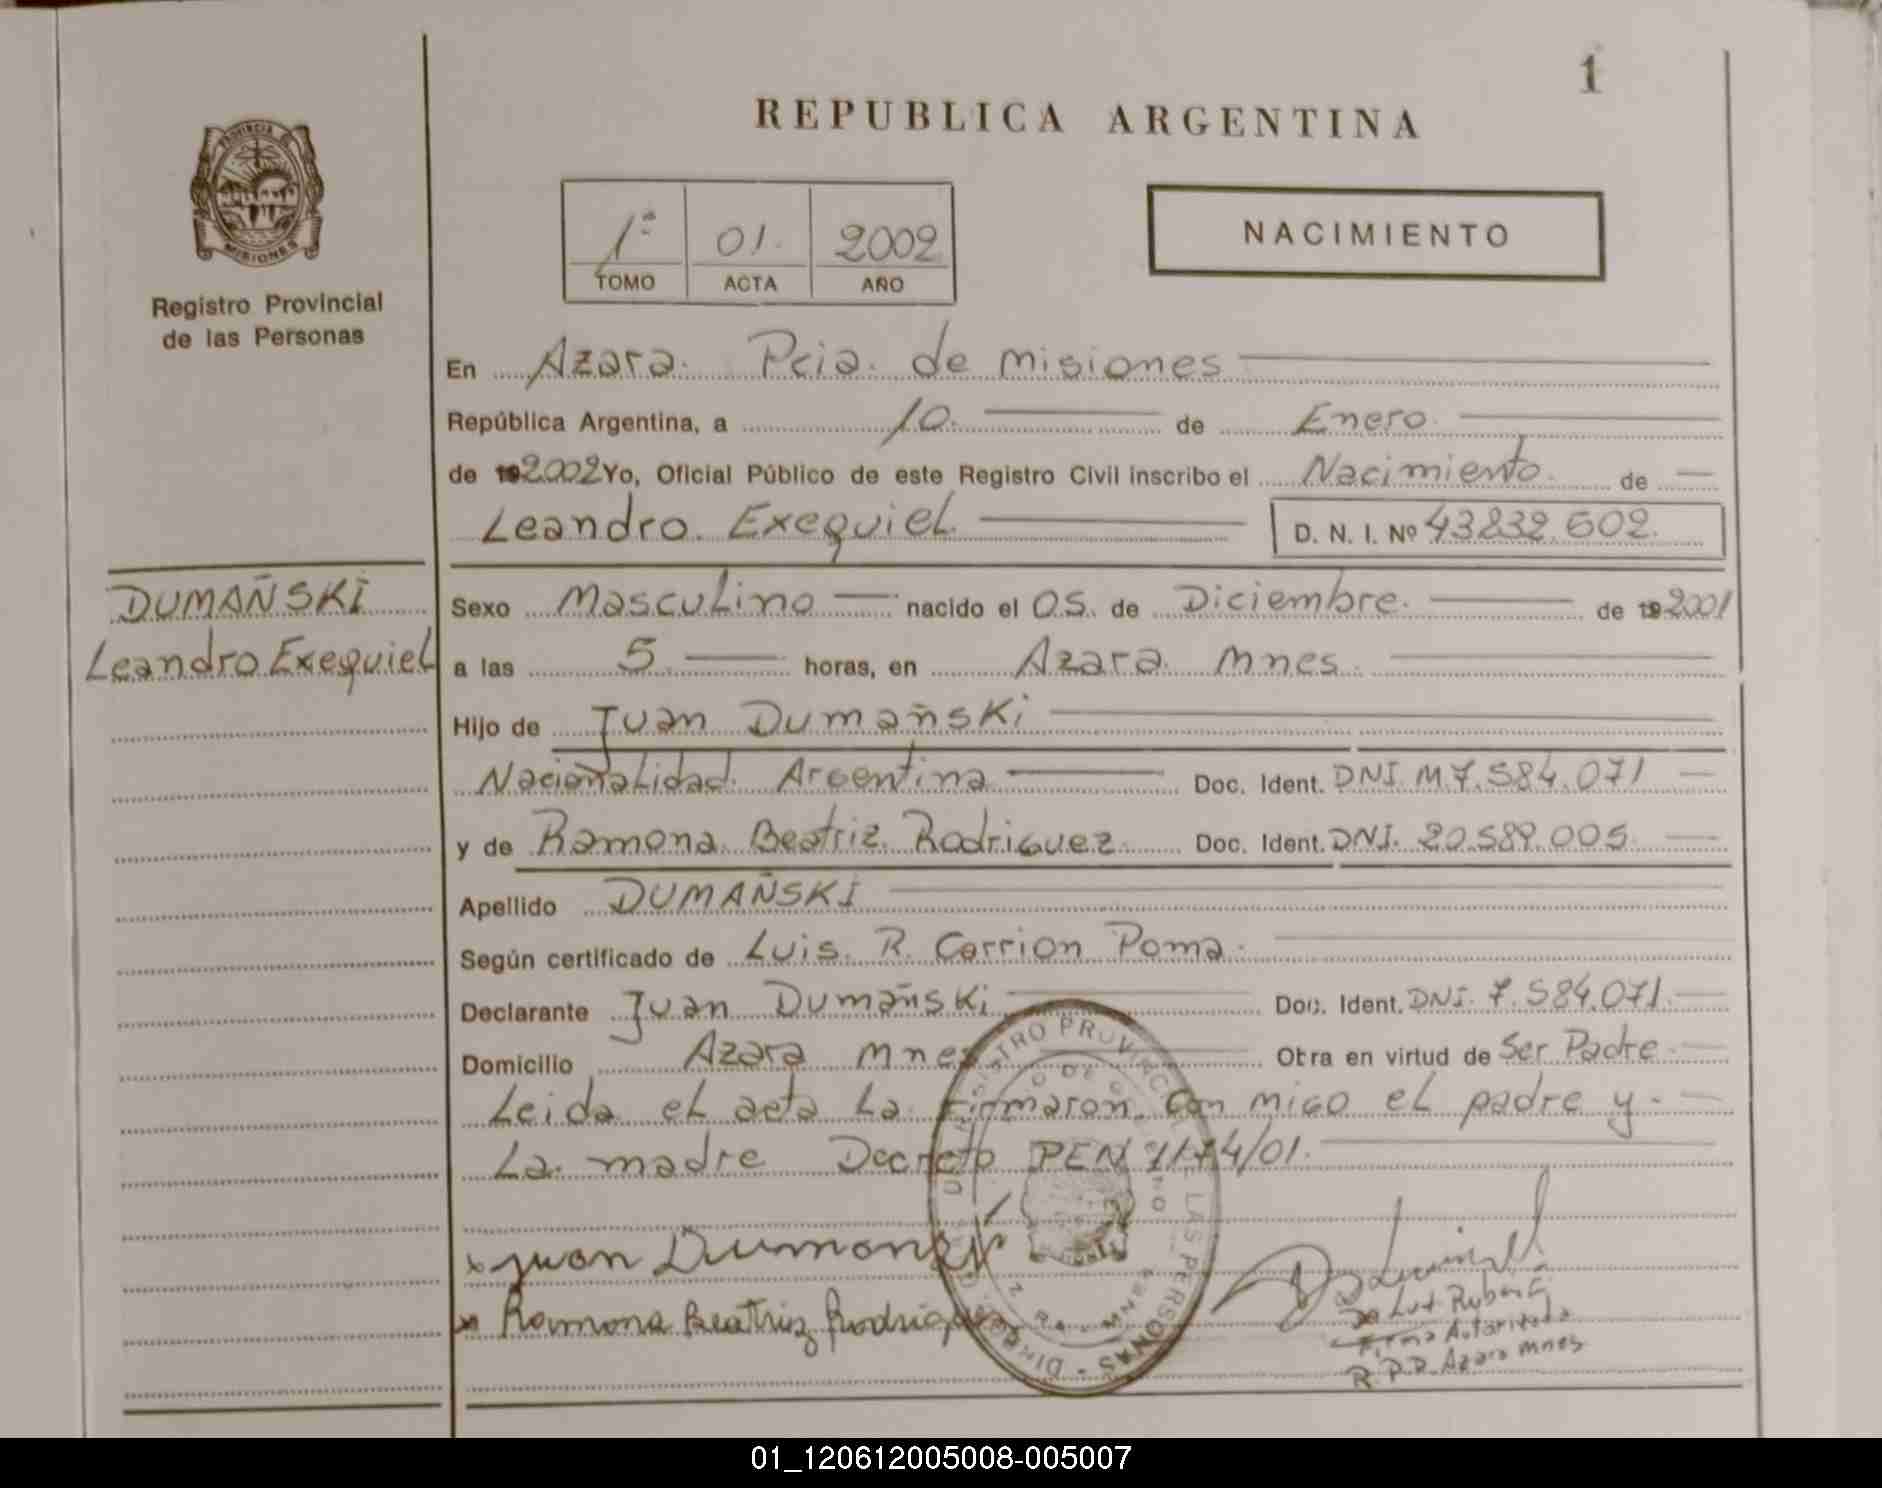 1
REPUBLICA ARGENTINA
PROVINCIA DE
MISIONES
Registro Provincial
de las Personas
1º 01. 2002
TOMO ACTA AÑO
NACIMIENTO
En Azara. Pcia. de Misiones
República Argentina, a 10. de Enero.
de 192002 Yo, Oficial Público de este Registro Civil inscribo el Nacimiento. de
Leandro. Exequiel. D. N. I. Nº 43832.602.
DUMAÑSKI
Leandro Exequiel
Sexo Masculino nacido el 05. de Diciembre. de 192001
a las 5. horas, en Azara. Mnes.
Hijo de Juan Dumañski
Nacionalidad. Argentina Doc. Ident. DNI. M 7.584.071
y de Ramona Beatriz Rodriguez Doc. Ident. DNI. 20.589.005.
Apellido DUMAÑSKI
Según certificado de Luis. R. Carrion Poma.
Declarante Juan Dumañski Doc. Ident. DNI. 7.584.071.
Domicilio Azara Mnes Otra en virtud de Ser Padre.
Leida el acta la firmaron. Con migo el padre y.
La madre Decreto PEN 1174/01.
x Juan Dumonski
x Ramona Beatriz Rodriguez
Firma Autorizada
R. P. P. Azara Mnes
01_120612005008-005007